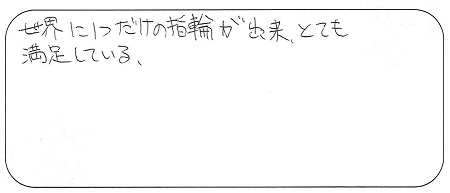 世界に1つだけの指輪が出来、とても
満足している、